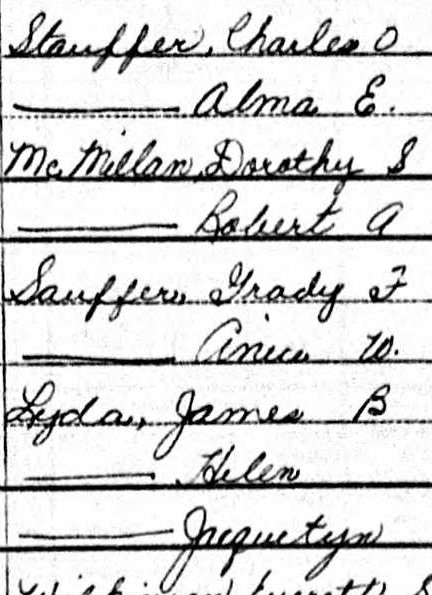 Stauffer, Charles O
——— Alma E.
McMillan, Dorothy S
——— Robert A
Sauffer, Grady F
——— Anica W.
Lyda, James B
——— Helen
——— Jrquetyn